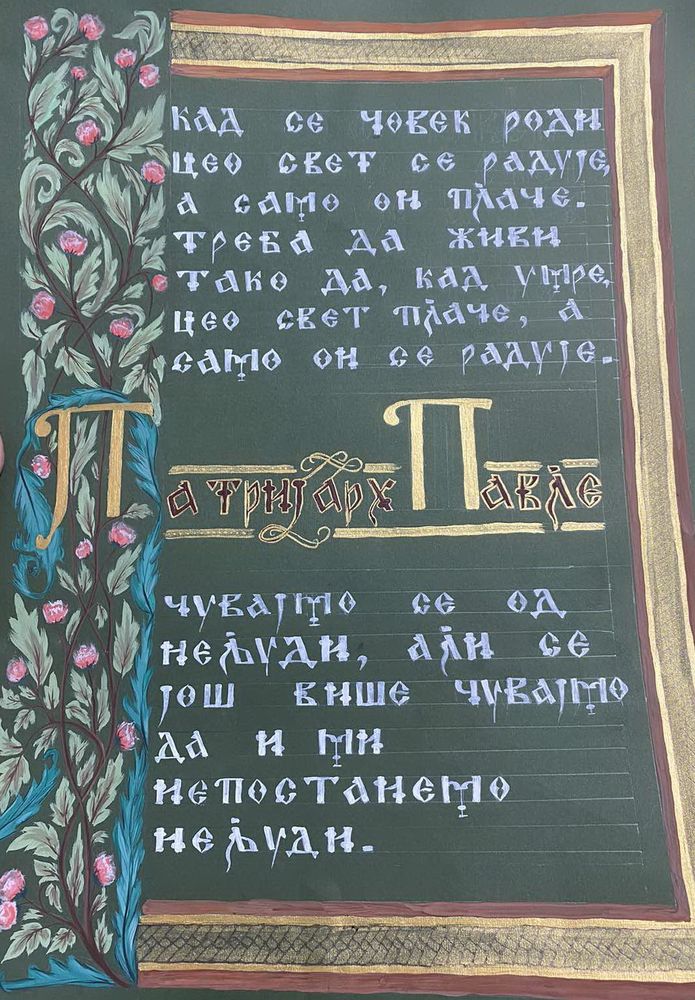 КАД СЕ ЧОВЕК РОДИ
ЦЕО СВЕТ СЕ РАДУЈЕ,
А САМО ОН ПЛАЧЕ.
ТРЕБА ДА ЖИВИ
ТАКО ДА, КАД УМРЕ,
ЦЕО СВЕТ ПЛАЧЕ, А
САМО ОН СЕ РАДУЈЕ.
ПАТРИЈАРХ ПАВЛЕ
ЧУВАЈМО СЕ ОД
НЕЉУДИ, АЛИ СЕ
ЈОШ ВИШЕ ЧУВАЈМО
ДА И МИ
НЕПОСТАНЕМО
НЕЉУДИ.